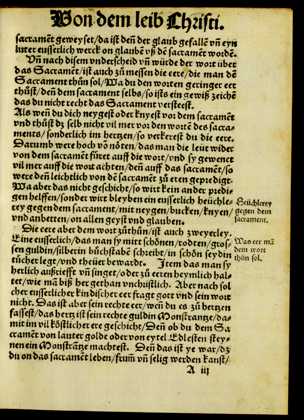 Von dem leib Christi.
sacramēt geweyset/ da ist dēn der glaub gefallē vn̄ eyn
lauter eusserlich werck on glaubē vß dē sacramēt wordē.
Vn̄ nach disem vnderscheid vn̄ würde der wort über
das Sacramēt/ ist auch zů messen die eere/ die man dē
Sacrament thůn sol/ Wa du den worten geringer eer
thůst/ deñ dem sacrament selbs/ so ists ein gewiß zeichē
das du nicht recht das Sacrament versteest.
Als wen̄ du dich neygest oder knyest vor dem sacramēt
vnd thůst dz selb nicht vil mer vor den wortē des sacra-
ments/ sonderlich im hertzen/ so verkerest du die eere.
Darumb were hoch vō nōten/ das man die leüt wider
von dem sacramēt füret auff die wort/ vnd sy gewenet
vil mer auff die wort achten/ deñ auff das sacramēt/ so
were deñ leichtlich von dē sacramēt zů eren gepredigt.
Wa aber das nicht geschicht/ so wirt kein ander predi-
gen helffen/ sonder wir bleyben ein eusserlich heüchle-
rey gegen dem sacrament/ mit neygen/ bucken/ knyen/
vnd anbetten/ on allen geyst vnd glauben.
Heüchlerey
gegen dem
sacrament.
Die eere aber dem wort zů thůn/ ist auch zweyerley.
Eine eusserlich/ das man sy mitt schönen/ rodten/ gros-
sen guldin/ silberin bůchstabē schreibt/ in schön seydin
tücher legt/ vnd theür bewaret. Item das man sy
herlich außrieffe vn̄ singet/ oder zů eeren heymlich hal-
tet/ wie mā biß her gethan vnchristlich. Aber nach sol
Was eer mā
dem wort
thůn sol.
cher eusserlicher kindischer eer fragt gott vnd sein wort
nicht. Das ist aber sein rechte eer/ wen̄ du es zů hertzen
fassest/ das hertz ist sein rechte guldin Monstrantz/ da-
mit im vil köstlicher ere geschicht/ Deñ ob du dem Sa
crament von lauter golde oder von eytel Edlesten stey-
nen ein Monstrātze machtest. Deñ das ist ye war/ dz
du on das sacramēt leben/ frum̄ vn̄ selig werden kanst/
A iij